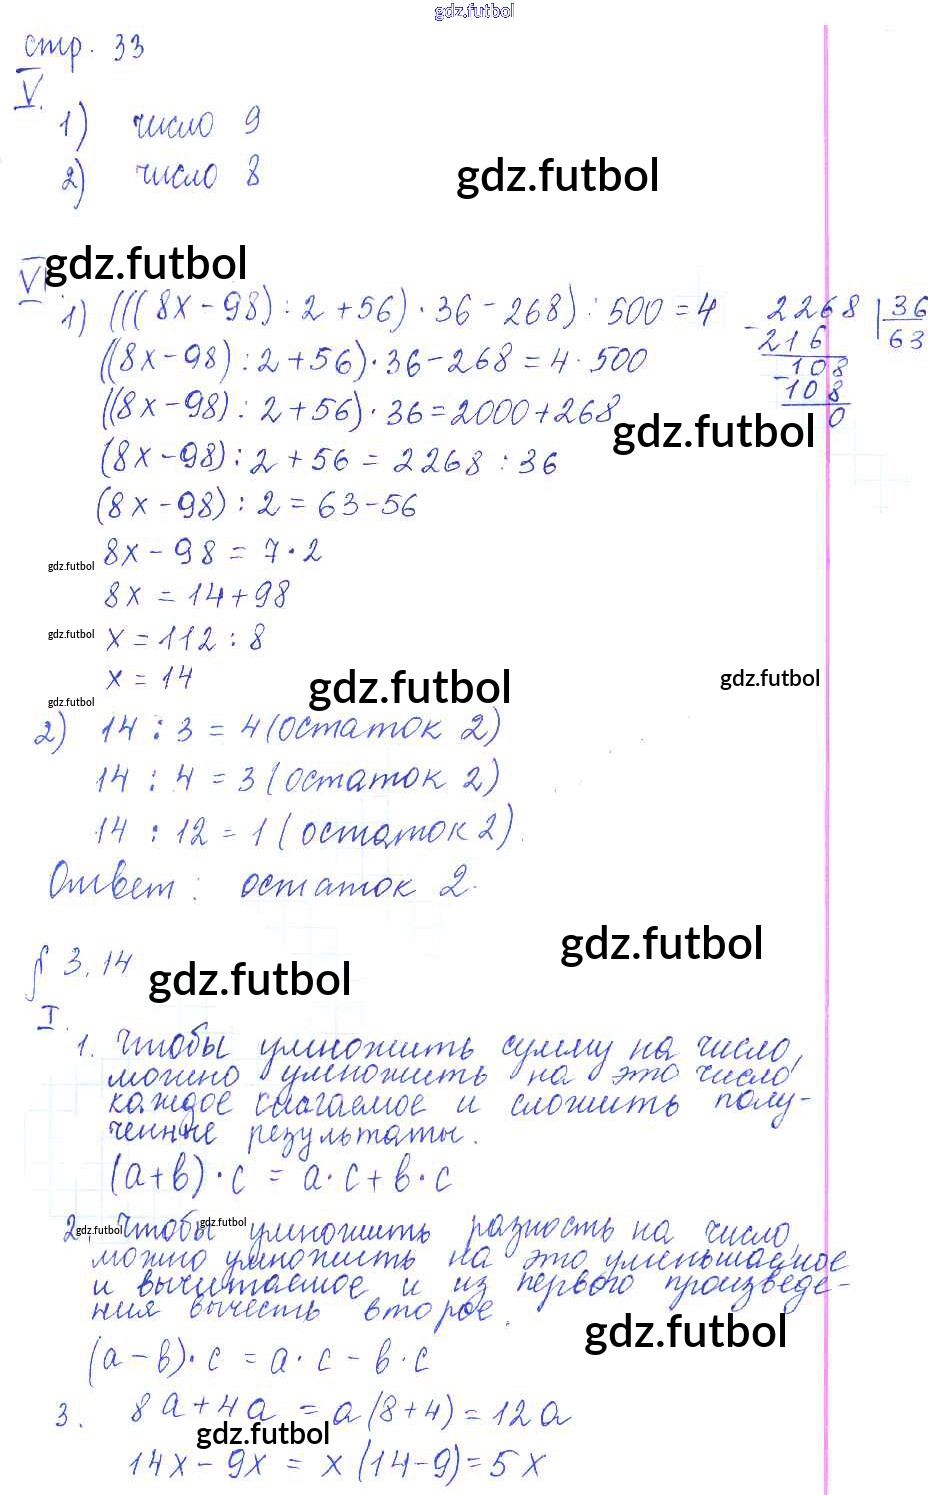 gdz.futbol
стр. 33
V.
1) число 9
2) число 8
gdz.futbol
gdz.futbol
VI
1) (((8x - 98) : 2 + 56) · 36 - 268) : 500 = 4
2268 | 36
- 216   63
- 108
108
0
((8x - 98) : 2 + 56) · 36 - 268 = 4 · 500
((8x - 98) : 2 + 56) · 36 = 2000 + 268
gdz.futbol
(8x - 98) : 2 + 56 = 2268 : 36
(8x - 98) : 2 = 63 - 56
8x - 98 = 7 · 2
gdz.futbol
8x = 14 + 98
gdz.futbol
x = 112 : 8
x = 14
gdz.futbol
gdz.futbol
gdz.futbol
2) 14 : 3 = 4 (остаток 2)
14 : 4 = 3 (остаток 2)
14 : 12 = 1 (остаток 2).
Ответ: остаток 2.
gdz.futbol
§ 3.14
gdz.futbol
I.
1. Чтобы умножить сумму на число,
можно умножить на это число
каждое слагаемое и сложить полу-
ченные результаты.
(a + b) · c = a · c + b · c
gdz.futbol
gdz.futbol
2. Чтобы умножить разность на число,
можно умножить на это уменьшаемое
и вычитаемое и из первого произведе-
ния вычесть второе.
gdz.futbol
(a - b) · c = a · c - b · c
3. 8a + 4a = a (8 + 4) = 12a
gdz.futbol
14x - 9x = x (14 - 9) = 5x